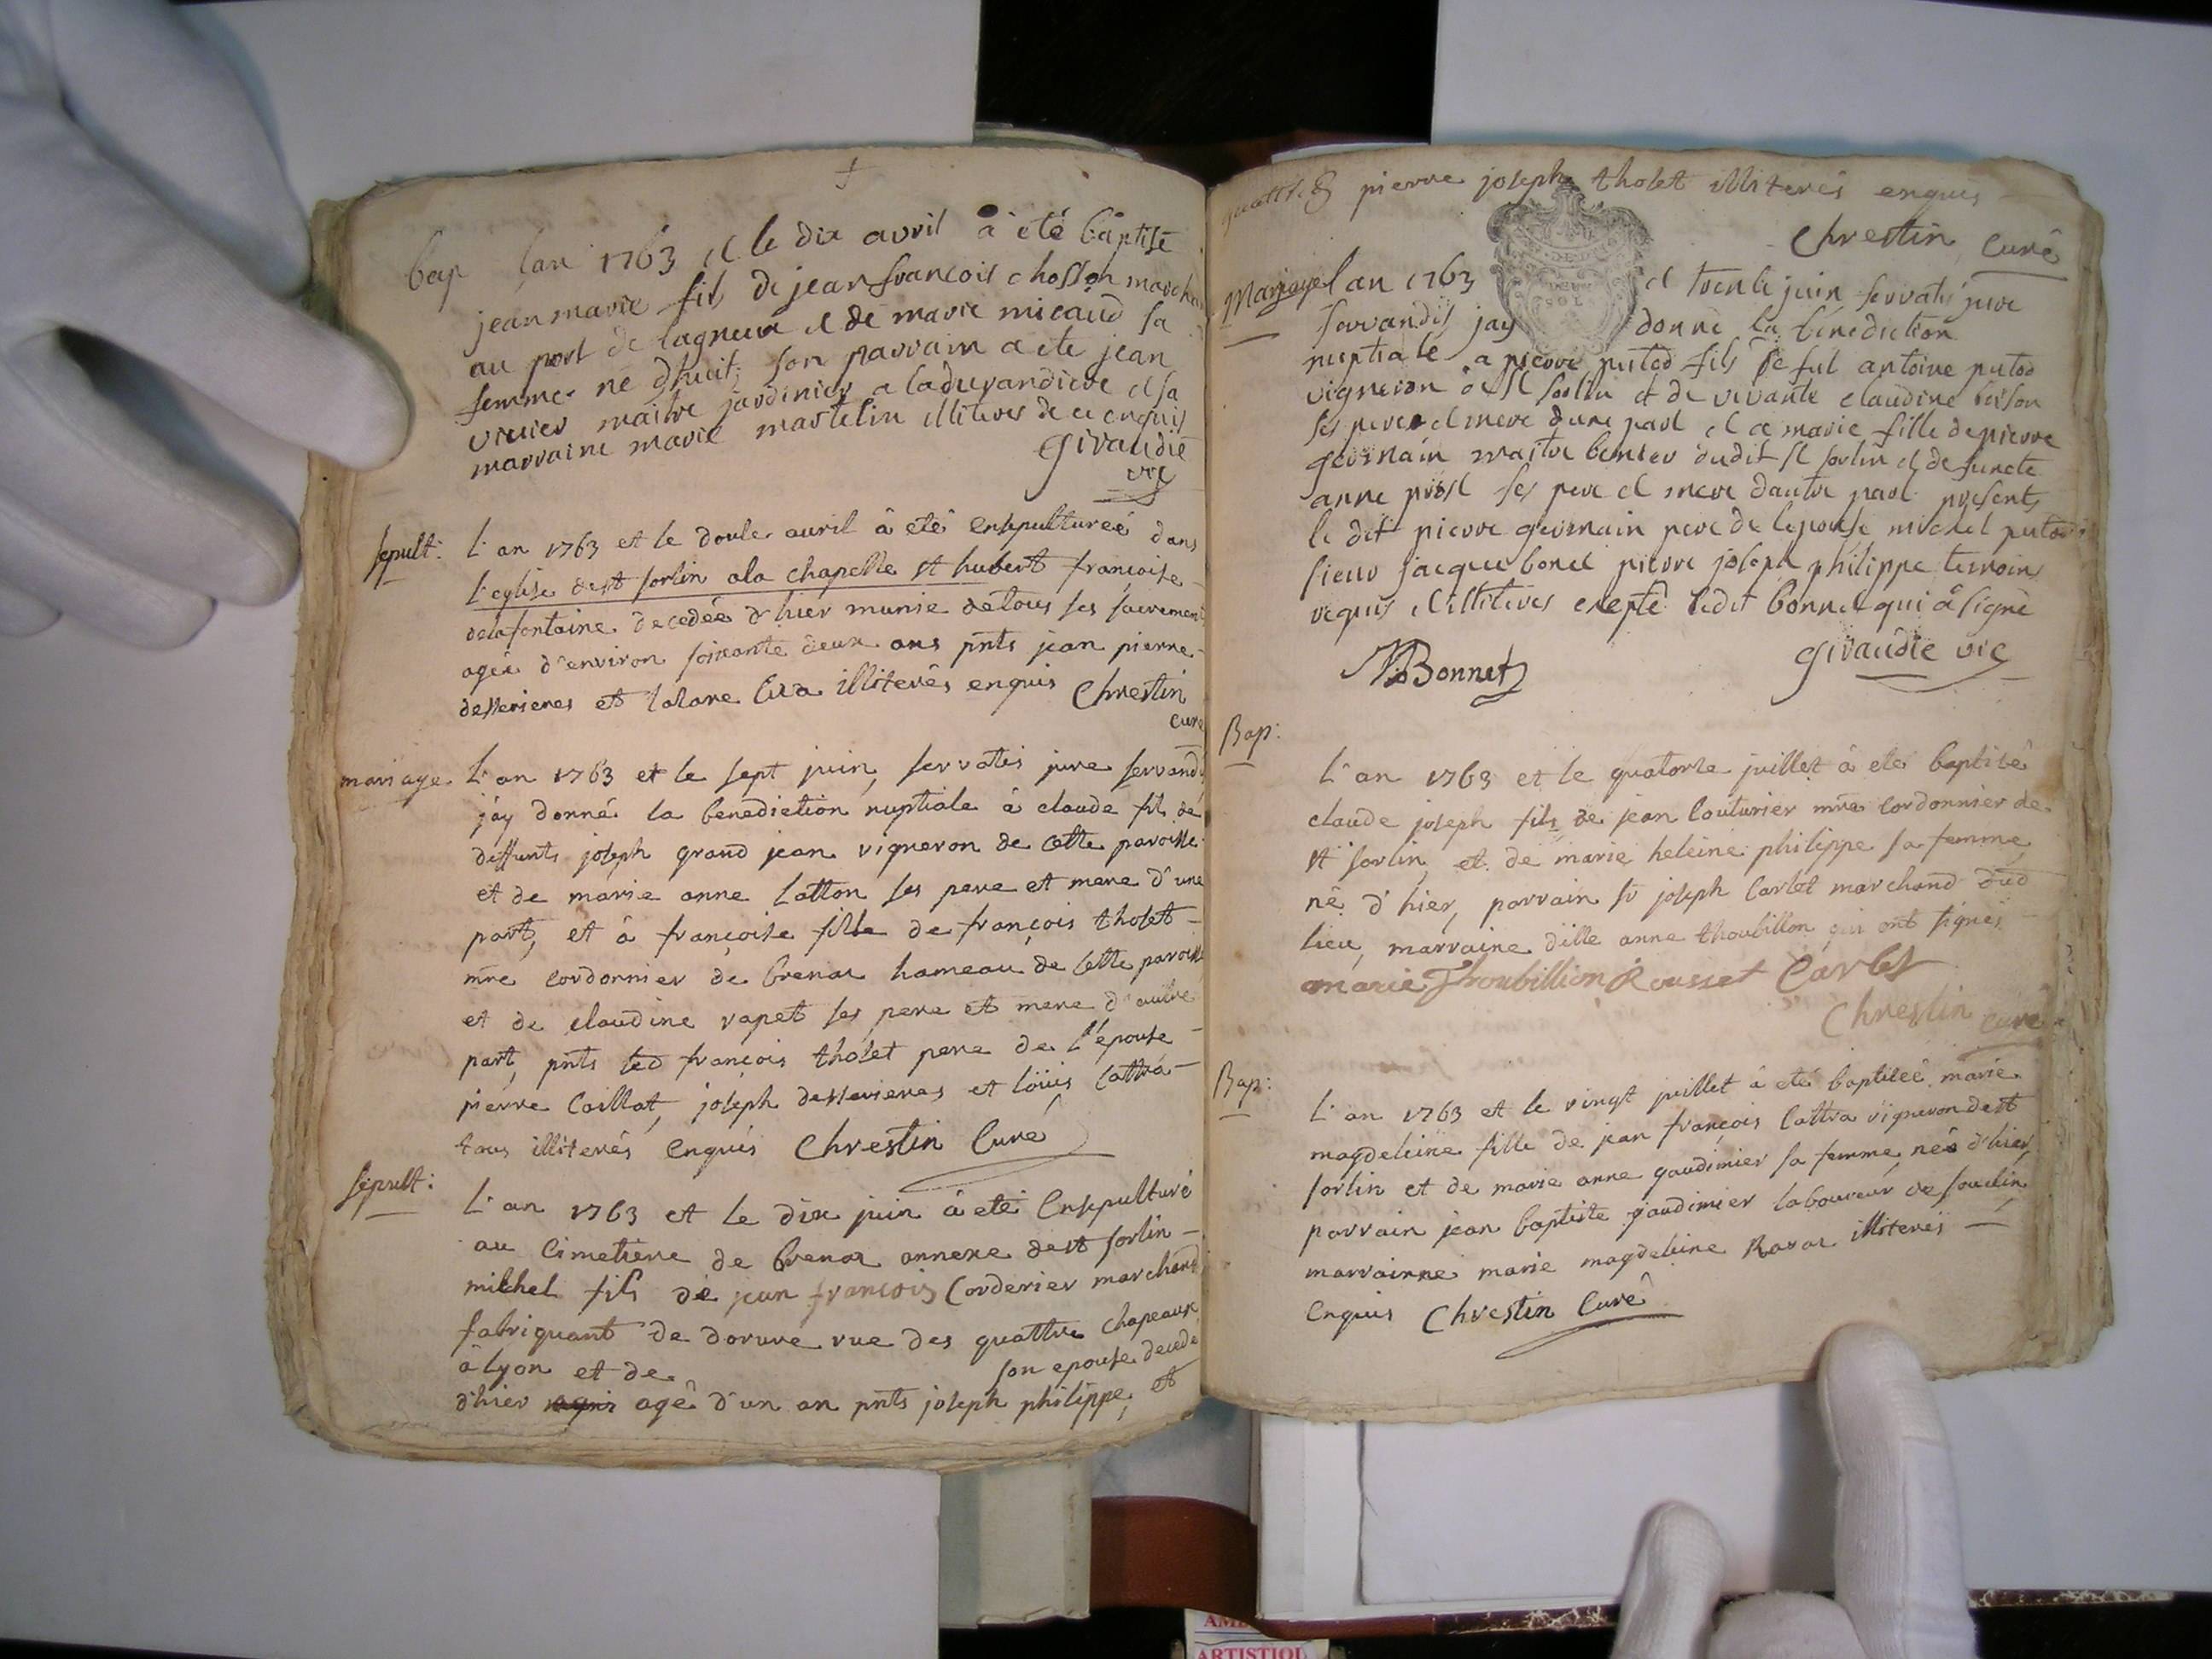 bap lan 1763 et le dix avril a été baptisé
jean marie fils de jean francois chosson marchan
au port de lagneux et de marie micaud sa
femme né dhuit, son parrain a ete jean
vivier maitre jardinier a laduvandiere et sa
marraine marie martelin illiteres de ce enquis
Giraudié
vic
sepult: L'an 1763 et le douze avril à eté ensepulturéé dans
l'eglise de st sorlin a la chapelle st hubert françoise
delafontaine decedéé d'hier munie de tous ses sacremens
agéé d'environ soixante deux ans pnts jean pierre
desserieres et illiterés enquis Chrestin
curé
mariage L'an 1763 et le sept juin, servatis jure servandis
j'ay donné la benediction nuptiale à claude fils de
deffunts joseph grand jean vigneron de cette paroisse
et de marie anne Catton ses pere et mere d'une
part, et à françoise fille de françois tholet
mre cordonnier de brenaz hameau de cette paroisse
et de claudine rapet ses pere et mere d'autre
part, pnts led françois tholet pere de l'épouse
pierre Caillat, joseph desserieres et loüis Cattra
tous illiterés enquis Chrestin Curé
sepult: L'an 1763 et le dix juin à eté ensepulturé
au Cimetiere de brenaz annexe de st sorlin
michel fils de jean françois Corderier marchand
fabriquant de dorure rue des quattre chapeaux
à lyon et de son epouse decedé
d'hier agé d'un an pnts joseph philippe, et
pierre joseph tholet illiterés enquis
Chrestin Curé
Mariage lan 1763 et trente juin servatis jure
servandis jay donné la benediction
nuptiale a pierre putod fils de fut antoine putod
vigneron à st sorlin et de vivante claudine
ses pere et mere dune part et a marie fille de pierre
germain maitre benier dudit st sorlin et defuncte
anne prost ses pere et mere dautre part presents
le dit pierre germain pere de lepouse michel putod
sieur jacque bonet pierre joseph philippe temoins
requis et illiteres excepté ledit bonnet qui à signé
Bonnet Giraudié vic
Bap:
L'an 1763 et le quatorze juillet à eté baptisé
claude joseph fils de jean Couturier mre cordonnier de
st sorlin, et de marie heleine philippe sa femme,
né d'hier, parrain sr joseph Carlet marchand dud
lieu, marraine dlle anne thoubillon qui ont signés
marie Thoubillion Rousset Carlet
Chrestin Curé
Bap:
L'an 1763 et le vingt juillet à eté baptiséé marie
magdeleine fille de jean françois Cattra vigneron de st
sorlin et de marie anne gaudimier sa femme, néé d'hier,
parrain jean baptiste gaudimier laboureur de souclin,
marrainne marie magdeleine Ravaz illiterés
enquis Chrestin Curé